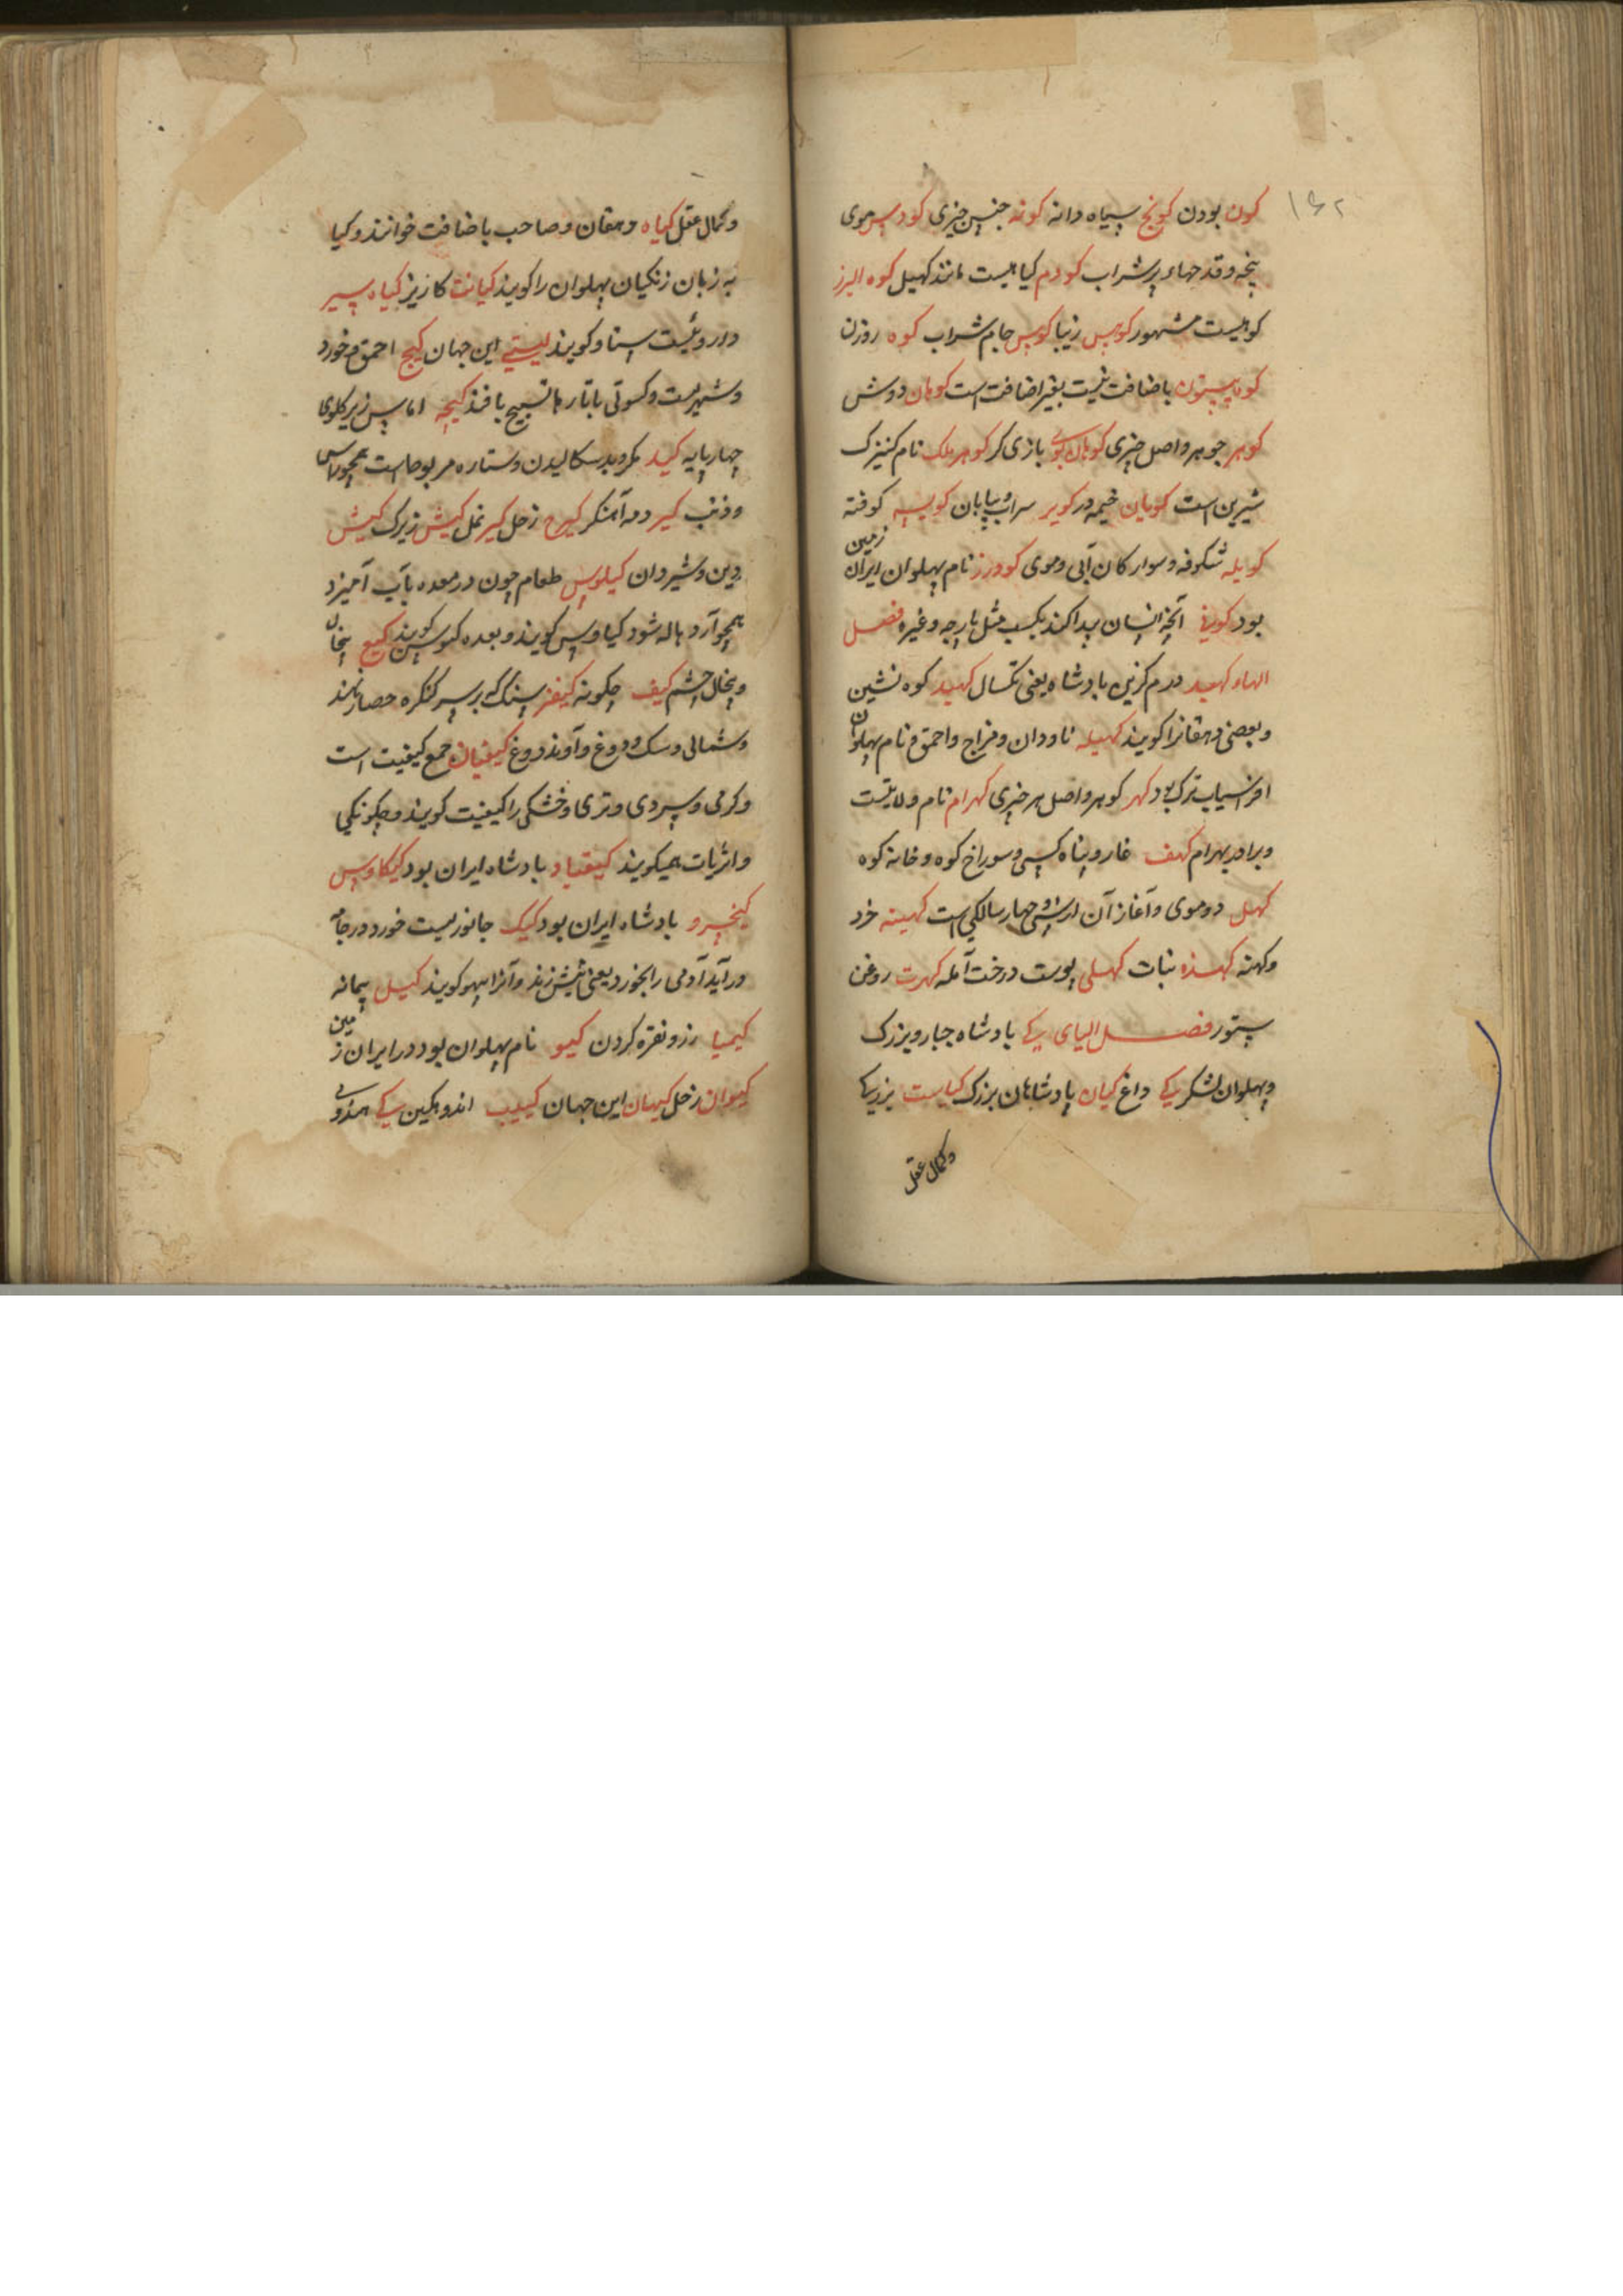 ۱۶۲
کون بودن کونج سیاه دانه کونه جنس چیزی کودس موی
پخه و قدحهاء پرشراب کودم کیاهیست مانند کهیل کوه البرز
کوهیست مشهور کوس زیبا کوس جام شراب کوه روزن
کوه بیستون باضافت نیست بغیر اضافت است کوهان دوش
کوهر جوهر و اصل چیزی کوهان کوی بازی کر کوهر ملک نام کنیزک
شیرین است کویان خیمه در کویر سراب و بیابان کویسه کوفته
کویله شکوفه و سوار کان آبی و موی کودرز نام پهلوان ایران زمین
بود کوینی آنچه انسان پیدا کند بکسب مثل پارچه و غیره فصل
الهاء کهبد درم کزین بادشاه یعنی تکسال کهبد کوه نشین
و بعضی دهقانرا کویند کهیله ناودان و فراج و احمق و نام پهلوان
افراسیاب ترک بود کهر کوهر و اصل هر چیزی کهرام نام ولایتست
و برادر بهرام کهف غار و پناه کسی و سوراخ کوه و خانه کوه
کهل دوموی و آغاز آن از سی و چهار سالکی است کهینه خرد
و کهنه کهنذه نبات کهلی پوست درخت آمله کهرت روغن
ستور فصل الیای کی بادشاه جبار و بزرک
و پهلوان لشکر کی داغ کیان پادشاهان بزرک کیاست بزرکی
و کمال عقل
و کمال عقل کیاه دهقان و صاحب باضافت خوانند و کیا
به زبان زنکیان پهلوان را کویند کیانت کازیز کیاه سیر
دارویست استاد کویند این جهان کیج احمق و خورد
و شهریست و کسوتی باتارها تسبیح بافند کیجه اماس زیر کلوی
چهارپایه کید مکر و بد سکالیدن و ستاره مربوط است همچو راس
و ذنب کیر دمه آهنکر کیرح زحل کیر نمل کیش زیرک کیش
دین و شیردان کیلوس طعام چون در معده بآب آمیزد
همچو آرد هاله شود کیاوس کویند و بعده کموس کویند کیع پنجال
و پنجال چشم کیف چکونه کیفر سنک که بر سر کنکره حصار نهند
و شمالی و سک دوغ و آوند دوغ کیفیان جمع کیفیت است
و کرمی و سردی و تری و خشکی را کیفیت کویند و چکونکی
و اثریات همیکویند کیقباد بادشاه ایران بود کیکاوس
کیخسرو بادشاه ایران بود کیک جانوریست خورد در جامه
در آید آدمی را بخورد یعنی نیش زند و آنرا پهو کویند کیل پیمانه
کیمیا زر و نقره کردن کیو نام پهلوان بود در ایران زمین
کیوان زحل کیهان این جهان کییب اندوهکین کی همدوی